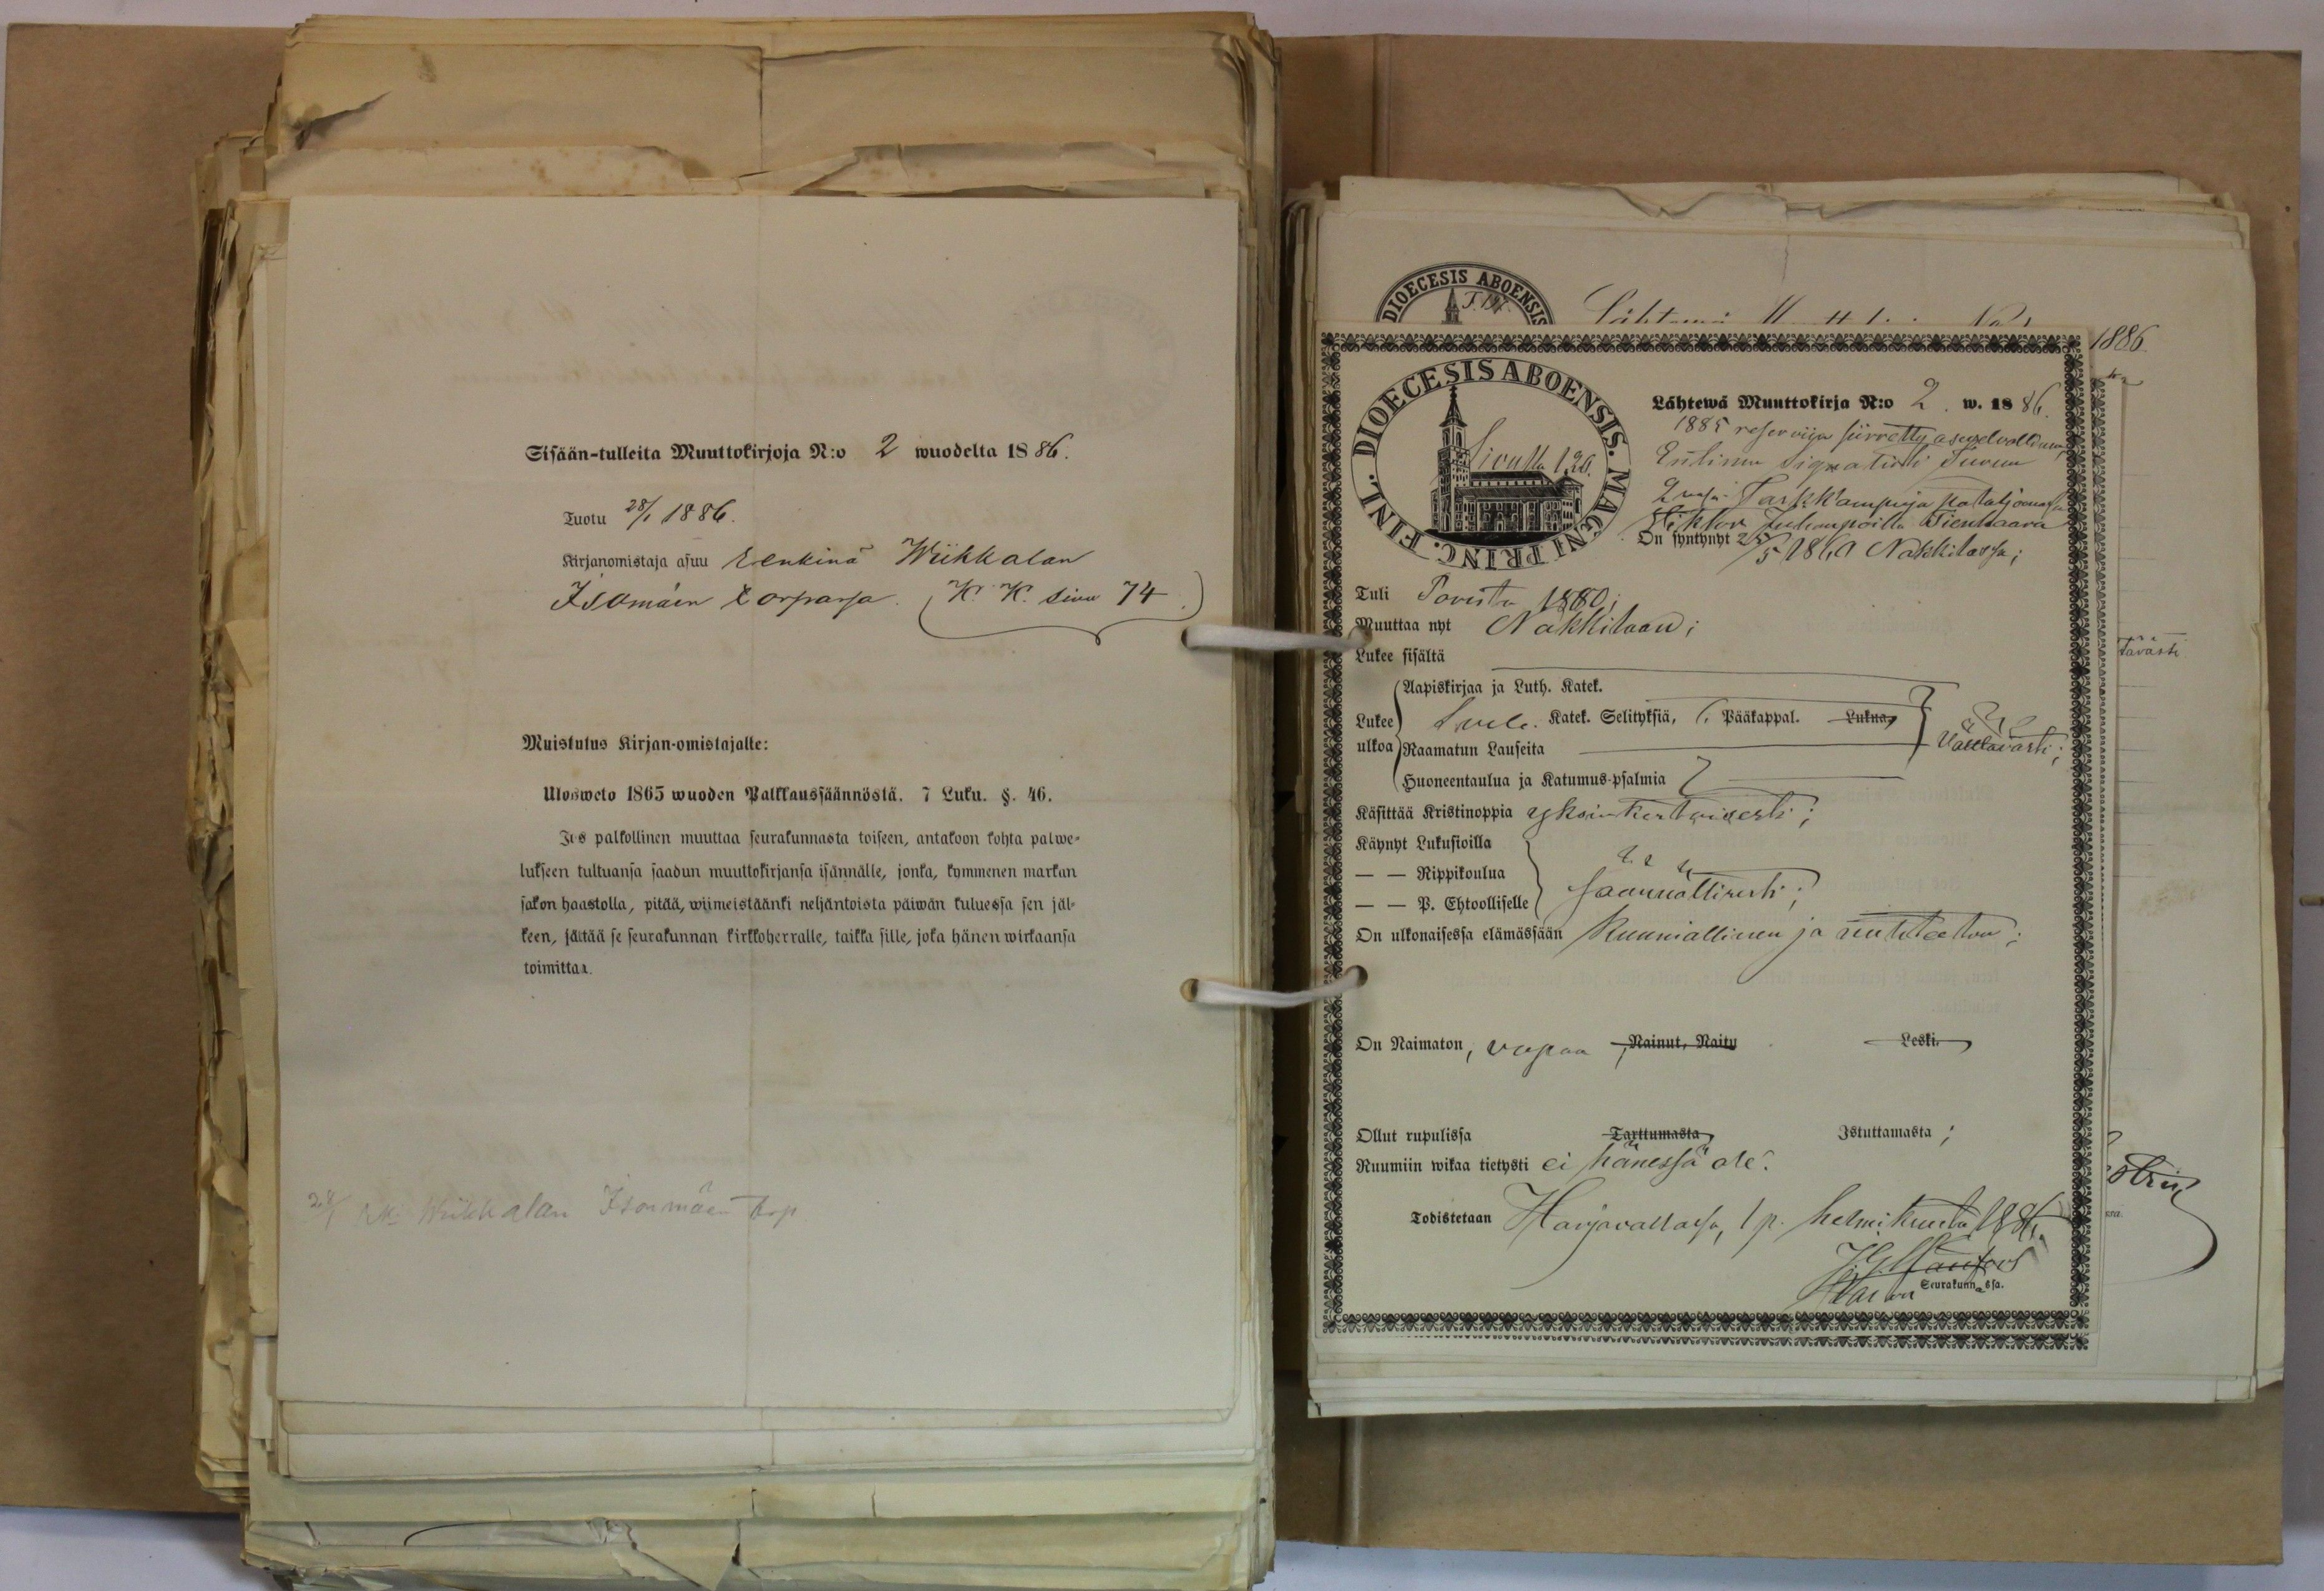 Sisään-tulleita Muuttokirjoja N:o 2 wuodelta 1886.
Tuotu 28/1 1886.
Kirjanomistaja asuu renkinä Wiikkalan
Isomäen torparsa. (K. K. sivu 74.)
Muistutus Kirjan-omistajalle:
Ulosweto 1865 wuoden Palkkaussäännöstä. 7 Luku. §. 46.
Jos palkollinen muuttaa seurakunnasta toiseen, antakoon kohta palwe-
lukseen tultuansa saadun muuttokirjansa isännälle, jonka, kymmenen markan
sakon haastolla, pitää, wiimeistäänki neljäntoista päiwän kuluessa sen jäl-
keen, jättää se seurakunnan kirkkoherralle, taikka sille, joka hänen wirkaansa
toimittaa.
28/1 Wiikkalan Isonmäen torp
DIOECESIS ABOENSIS
1886
DIOECESIS ABOENSIS. MAGNI PRINC. FINL.
Sivulta 120.
Lähtewä Muuttokirja N:o 2. w. 1886.
1885 reserviin siirretty asevelvollinen,
Entinen Signalisti Turun
2 Tarkk'ampuja Pataljoonassa
Viktor Juhanpoika Tienhaara
On syntynyt 25/5 1860 Nakkilassa;
Tuli Porista 1880;
Muuttaa nyt Nakkilaan;
Lukee sisältä
Lukee ulkoa
Aapiskirjaa ja Luth. Katek.
Katek. Selityksiä, Pääkappal. Lukua,
Raamatun Lauseita
Välttävästi;
Huoneentaulua ja Katumus-psalmia
Käsittää Kristinoppia yksinkertaisesti;
Käynyt Lukusioilla
— — Rippikoulua
— — P. Ehtoolliselle
säännöllisesti;
On ulkonaisessa elämässään kunniallinen ja nuhteeton;
On Naimaton, vapaa, Nainut, Naitu Leski.
Ollut rupulissa Tarttumasta, Istuttamasta;
Ruumiin wikaa tietysti ei hänessä ole.
Todistetaan Harjavallassa, 1 p. helmikuuta 1886.
Seurakunnassa.